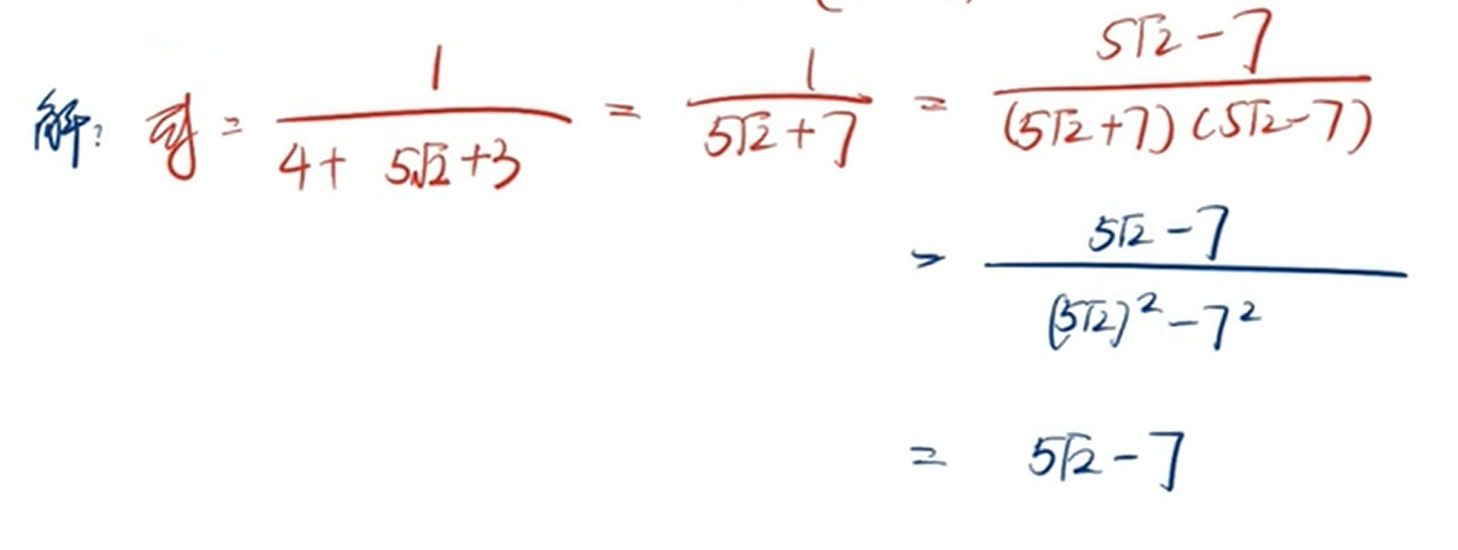 解: 原式 = 1/(4+ 5√2+3) = 1/(5√2+7) = (5√2-7)/((5√2+7)(5√2-7))
= (5√2-7)/((5√2)²-7²)
= 5√2-7